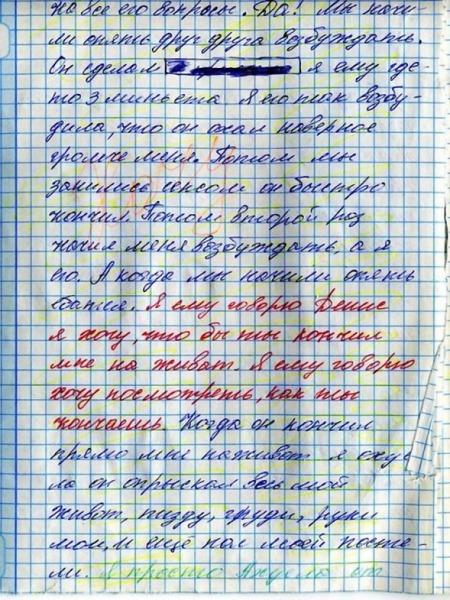 на все его вопросы. Да! Мы начи-
ли опять друг друга возбуждать.
Он сделал я ему где-
то 3 миньета. Я его так возбу-
дила, что он охал наверное
громче меня. Потом мы
занились сексом он быстро
кончил. Потом второй раз
начил меня возбуждать, а я
его. А когда мы начили опять
ебатся. Я ему говорю Денис
я хочу, что бы ты кончил
мне на живат. Я ему говорю
хочу посмотреть, как ты
кончаешь. Когда он кончил
прямо мне на живот я оху
ла он опрыскал весь мой
живот, пизду, груди, руки
мои, и ещё пол моей посте-
ли. Я просто от